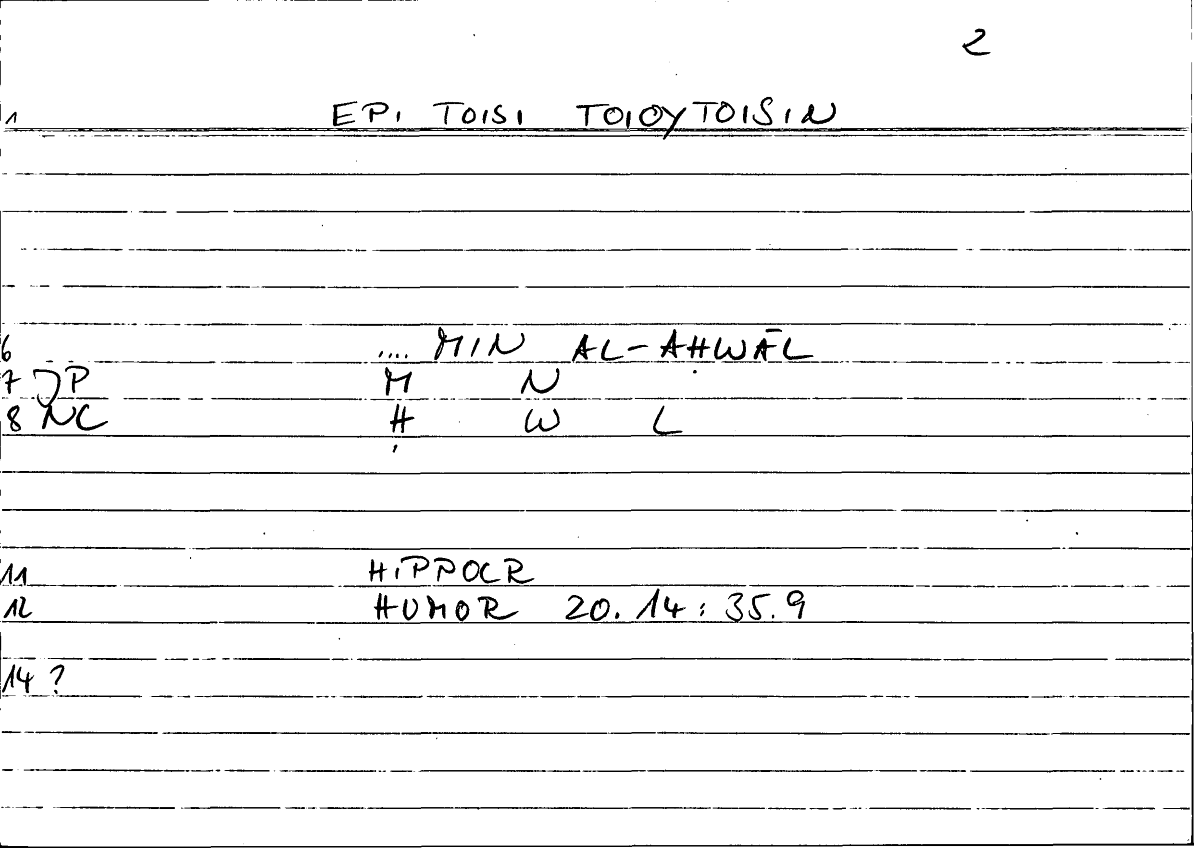 2
1 EPI TOISI TOIOYTOISIN
6 .... MIN AL-AḤWĀL
7 JP M N
8 NC Ḥ W L
11 HIPPOCR
12 HUMOR 20.14 : 35.9
14 ?